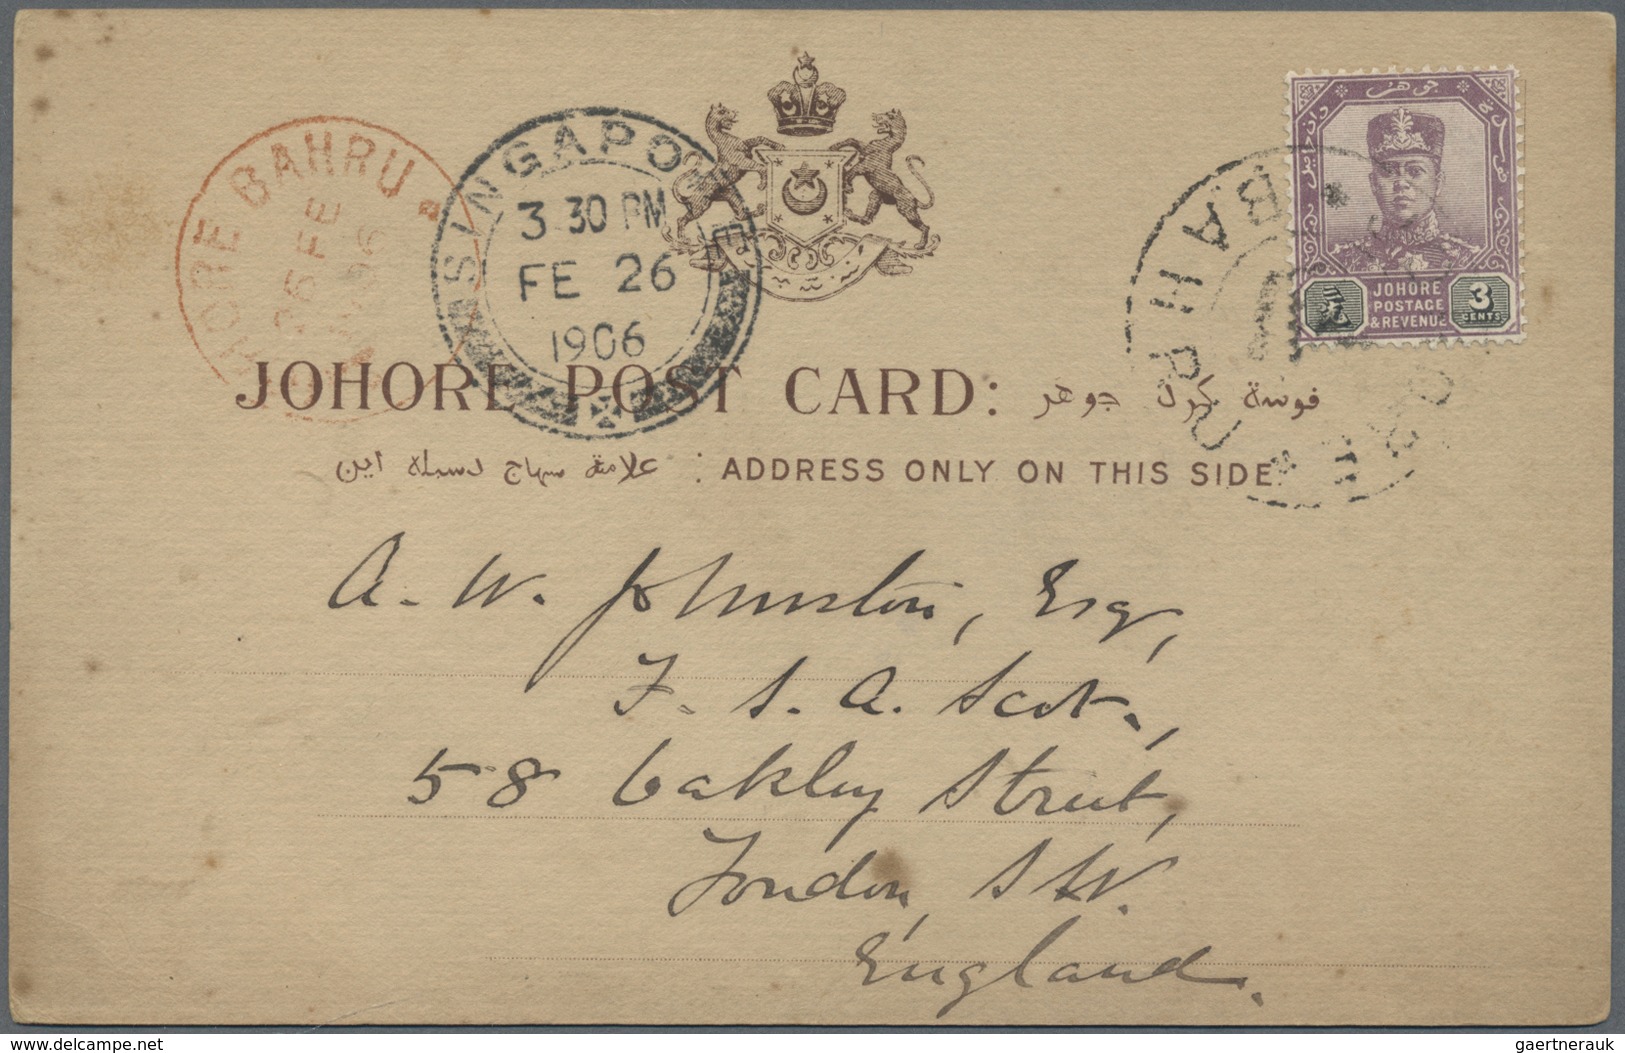 JOHORE BAHRU
26 FE
06
SINGAPORE
3 30 PM
FE 26
1906
جوهر
JOHORE
POSTAGE
& REVENUE
3
CENTS
BAHRU
JOHORE POST CARD: فوسة كرد جوهر
علامة سهاج دسبله اين : ADDRESS ONLY ON THIS SIDE.
A. W. Johnston, Esq,
F. S. A. Scot.,
58 Oakley Street,
London, S W.
England.
delcampe.net
gaertnerauk